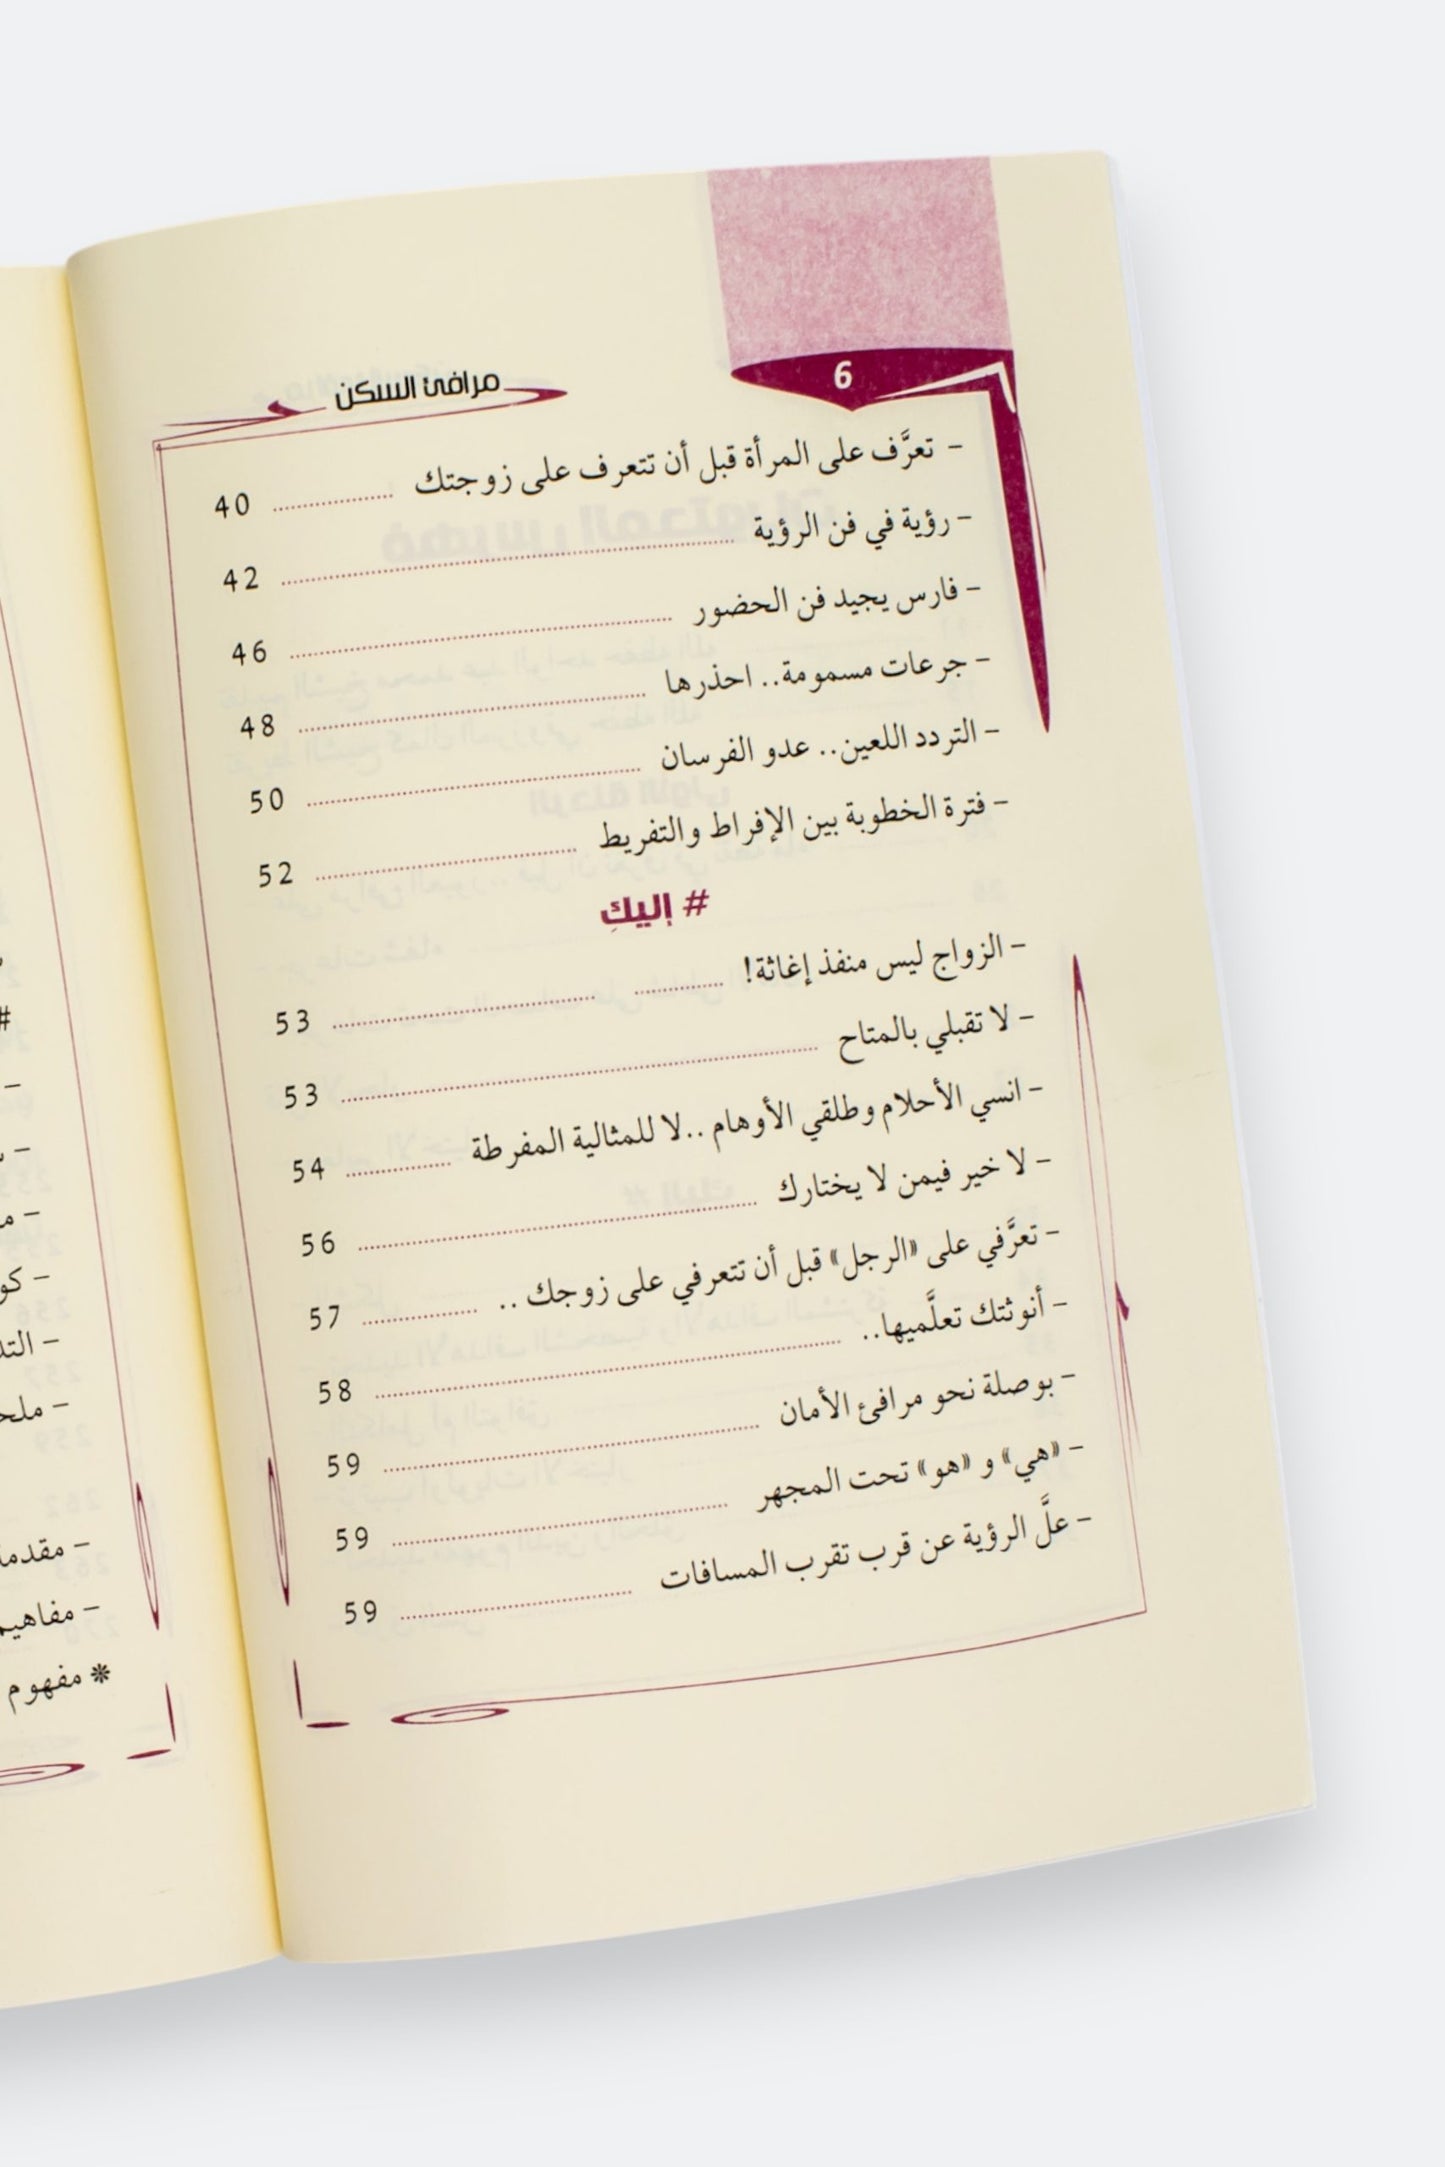 6
مرافئ السكن
- تعرَّف على المرأة قبل أن تتعرف على زوجتك ............ 40
- رؤية في فن الرؤية ............ 42
- فارس يجيد فن الحضور ............ 46
- جرعات مسمومة.. احذرها ............ 48
- التردد اللعين.. عدو الفرسان ............ 50
- فترة الخطوبة بين الإفراط والتفريط ............ 52
# إليكِ
- الزواج ليس منفذ إغاثة! ............ 53
- لا تقبلي بالمتاح ............ 53
- انسي الأحلام وطلقي الأوهام ..لا للمثالية المفرطة ............ 54
- لا خير فيمن لا يختارك ............ 56
- تعرَّفي على «الرجل» قبل أن تتعرفي على زوجك .. ............ 57
- أنوثتك تعلَّميها.. ............ 58
- بوصلة نحو مرافئ الأمان ............ 59
- «هي» و «هو» تحت المجهر ............ 59
- علَّ الرؤية عن قرب تقرب المسافات ............ 59
#
- ملحـ
- مقدمة
- مفاهيم
* مفهوم